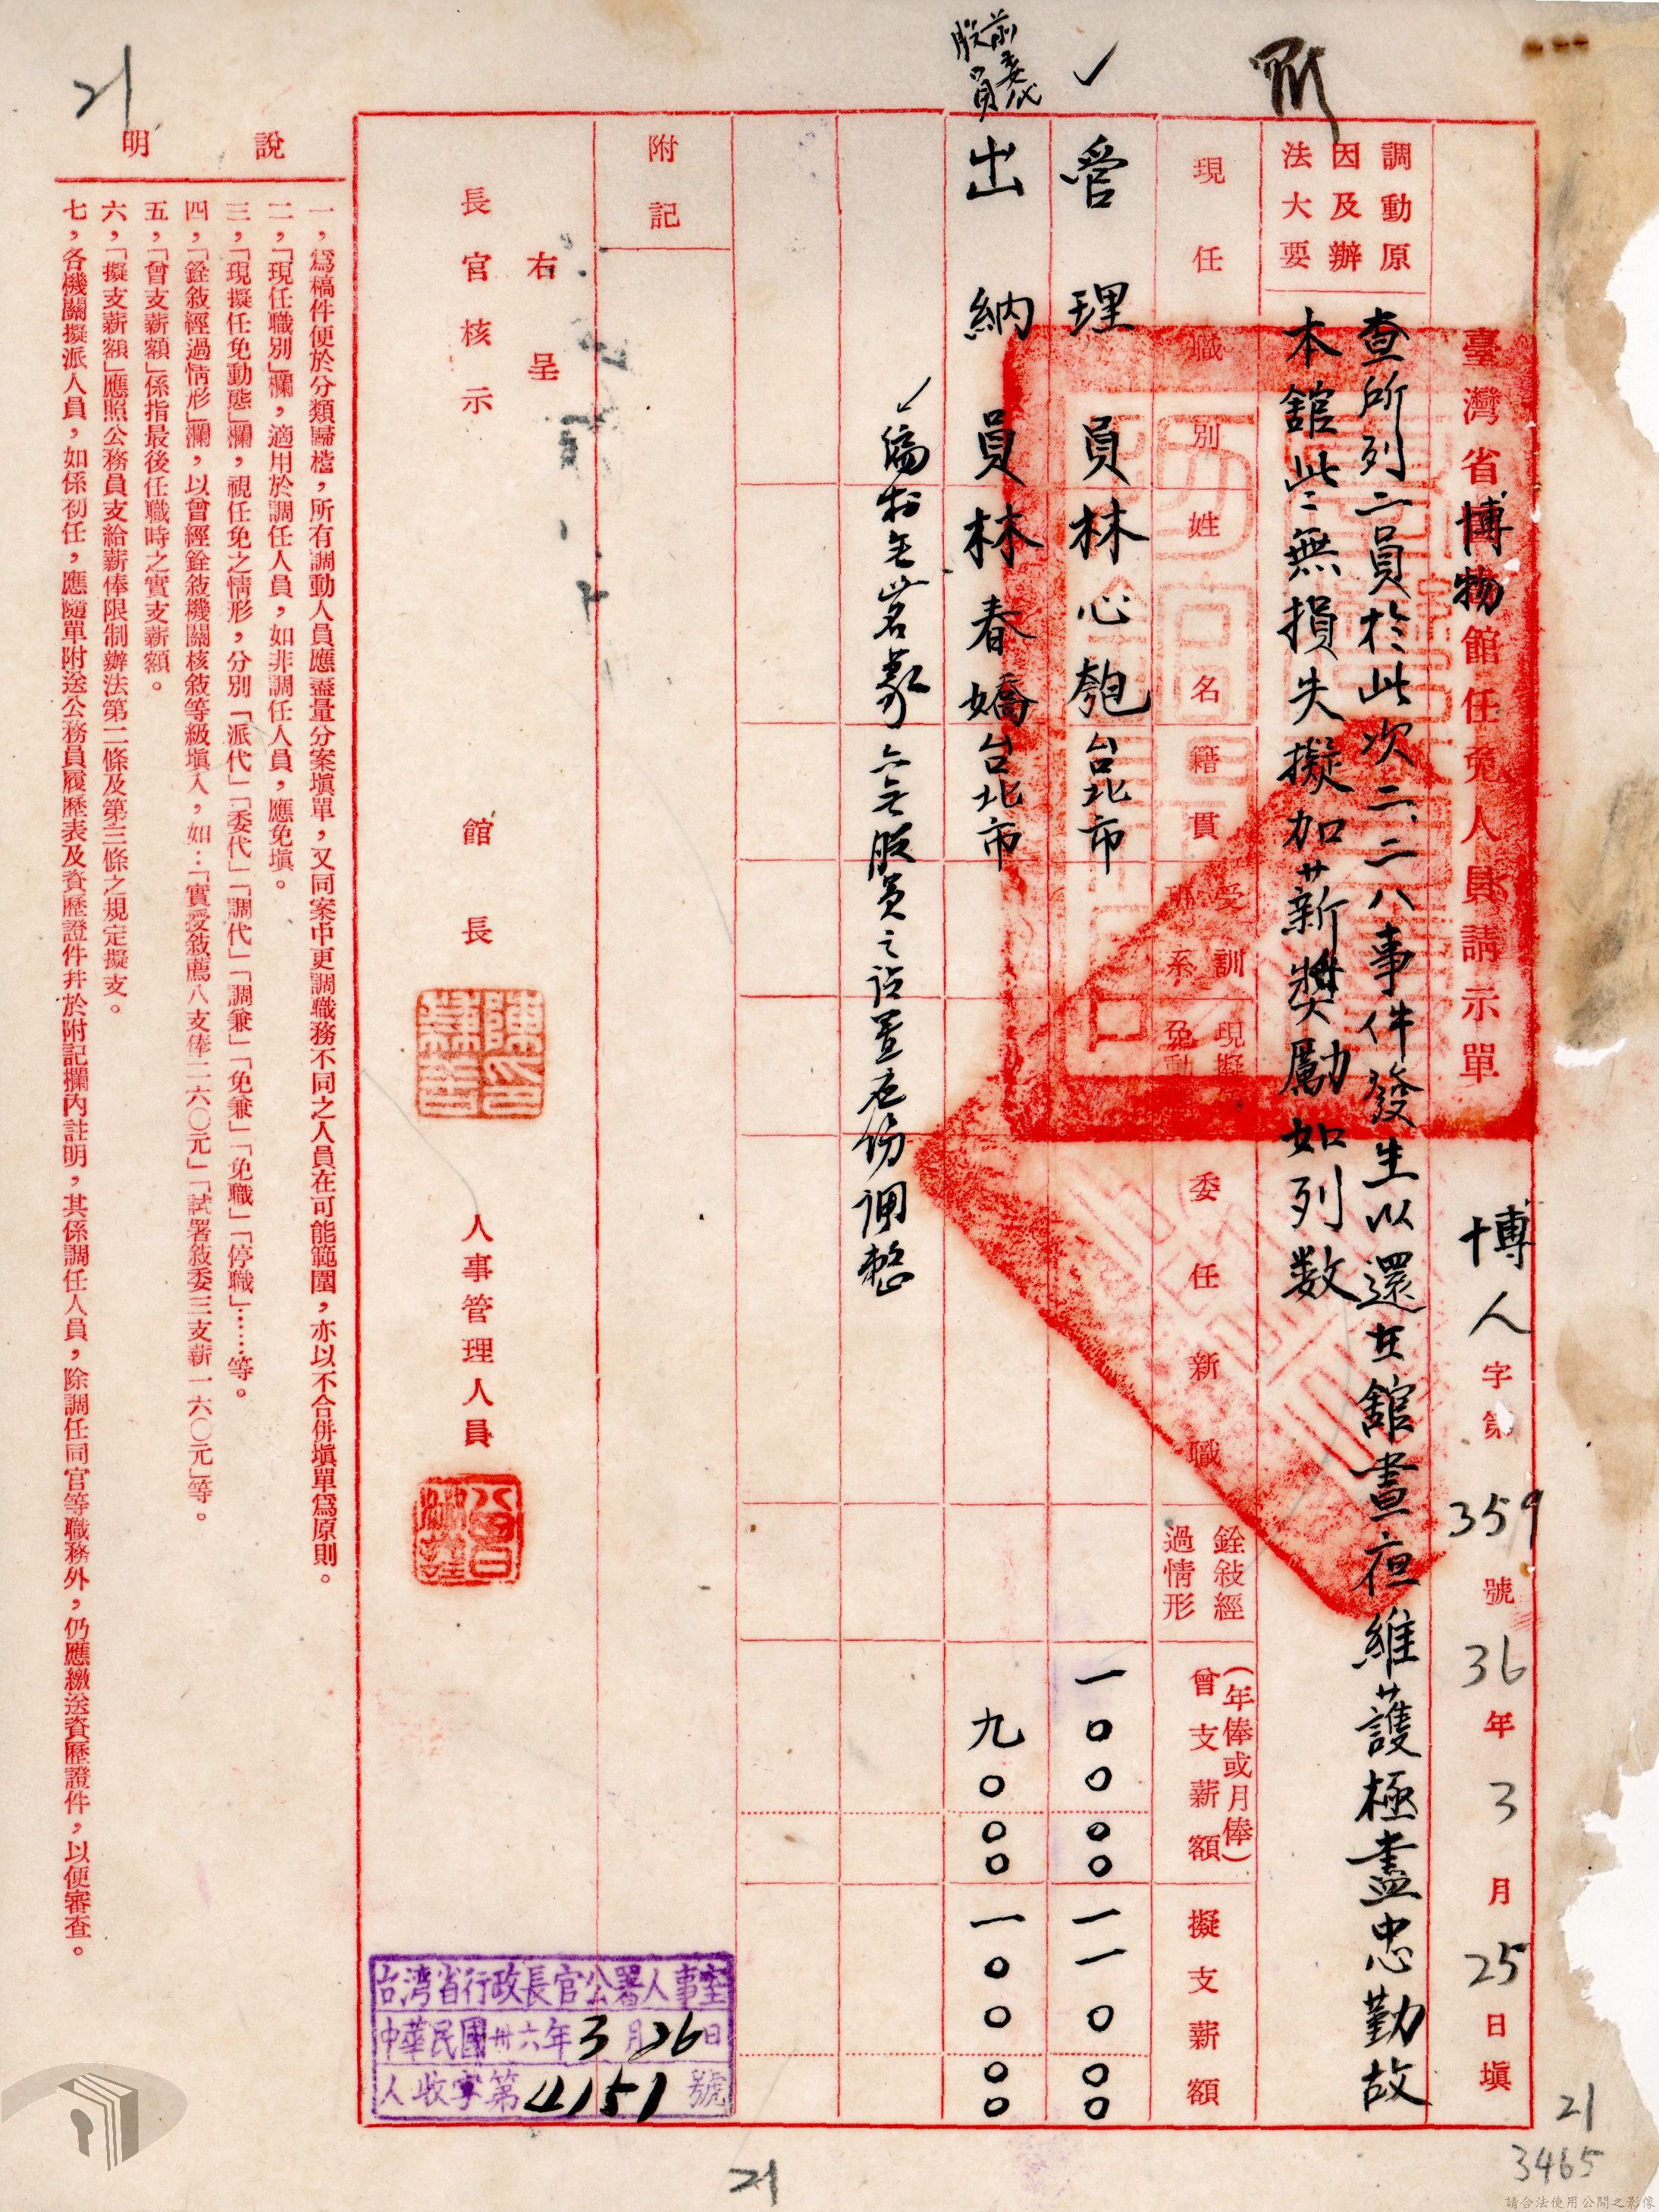 臺灣省博物館任免人員請示單
博人字第359號36年3月25日填
調動原因及辦法大要
查所列二員於此次二、二八事件發生以還在館晝夜維護極盡忠勤故
本館此次無損失擬加薪獎勵如列数
現任職別
姓名
籍貫
受訓班系
現擬免動
委任新職
銓敍經過情形
曾支薪額
(年俸或月俸)
擬支薪額
管理員林心匏台北市
一〇〇〇〇
一一〇〇〇
前委代股員
出納員林春嬌台北市
九〇〇〇
一〇〇〇〇
編制无此名義亦无股員之設置应飭調整
附記
右呈
長官核示
館長
人事管理人員
台湾省行政長官公署人事室
中華民國卅六年3月26日
人收字第4151號
說明
一,爲稿件便於分類歸檔,所有調動人員應盡量分案塡單,又同案中更調職務不同之人員在可能範圍,亦以不合併塡單爲原則。
二,「現任職別」欄,適用於調任人員,如非調任人員,應免塡。
三,「現擬任免動態」欄,視任免之情形,分別「派代」「委代」「調代」「調兼」「免兼」「免職」「停職」……等。
四,「銓敍經過情形」欄,以曾經銓敍機關核敍等級塡入,如:「實授敍薦八支俸二六〇元」「試署敍委三支薪一六〇元」等。
五,「曾支薪額」係指最後任職時之實支薪額。
六,「擬支薪額」應照公務員支給薪俸限制辦法第二條及第三條之規定擬支。
七,各機關擬派人員,如係初任,應隨單附送公務員履歷表及資歷證件幷於附記欄內註明,其係調任人員,除調任同官等職務外,仍應繳送資歷證件,以便審查。
21
21
21
3465
請合法使用公開之影像